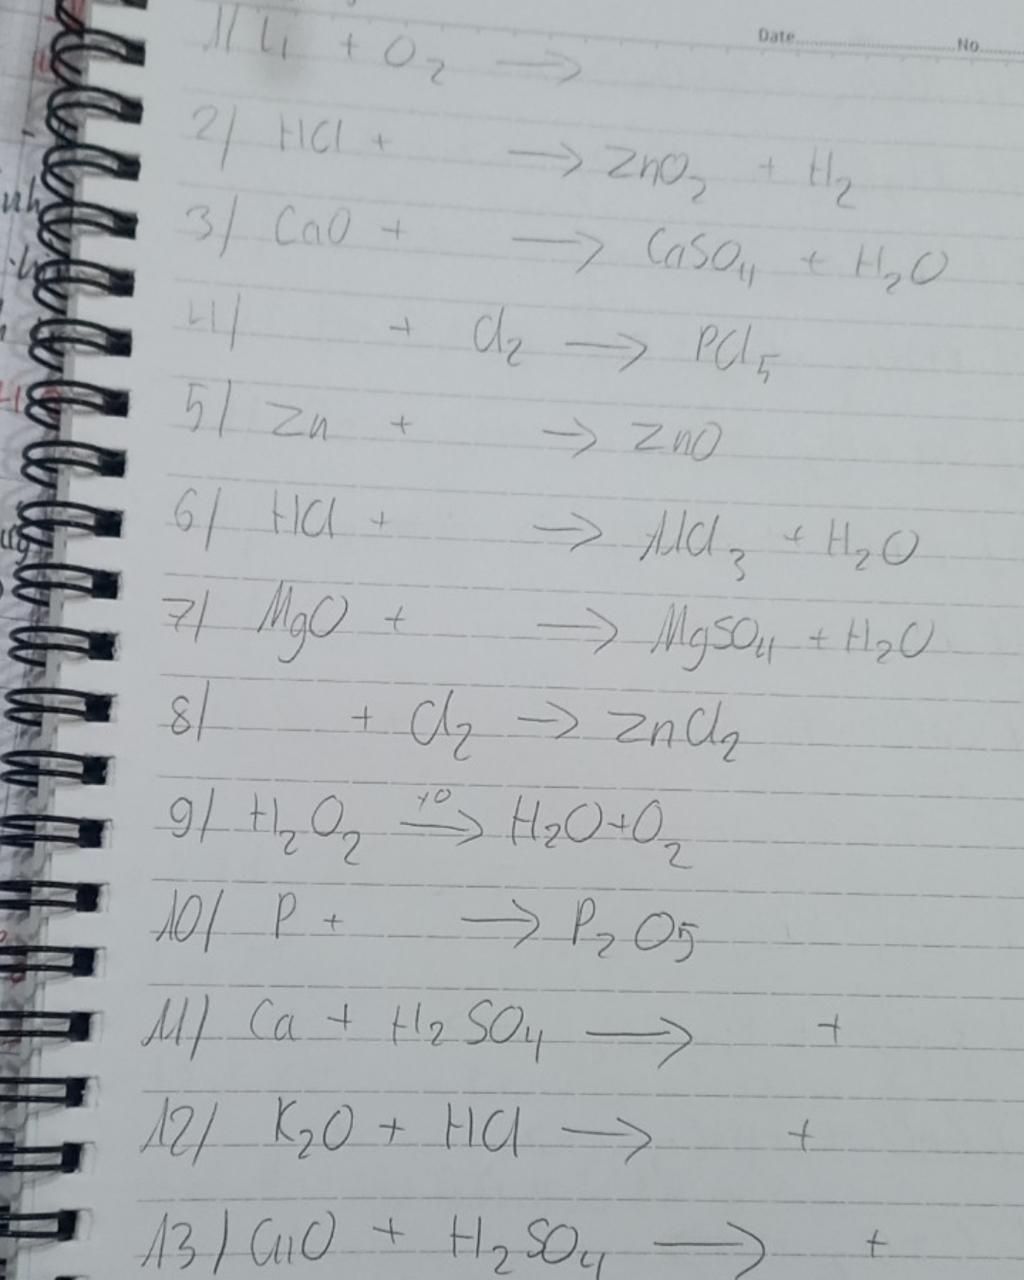 Date No.
1/ Li + O2 →
2/ HCl + → ZnO2 + H2
3/ CaO + → CaSO4 + H2O
4/ + Cl2 → PCl5
5/ Zn + → ZnO
6/ HCl + → AlCl3 + H2O
7/ MgO + → MgSO4 + H2O
8/ + Cl2 → ZnCl2
9/ H2O2 → H2O + O2
10/ P + → P2O5
11/ Ca + H2SO4 → +
12/ K2O + HCl → +
13/ CuO + H2SO4 → +